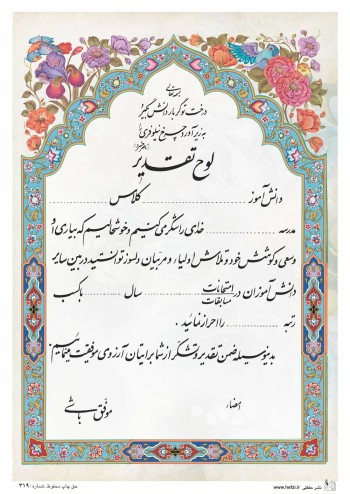 بسمه تعالی
درخت تو گر بار دانش بگیرد
به زیر آوری چرخ نیلوفری را
لوح تقدیر
دانش آموز ........ کلاس ........
مدرسه ........ خدای را شکر می کنیم و خوشحالیم که به یاری او
و سعی و کوشش خود و تلاش اولیاء و مربیان دلسوز توانستید در بین سایر
دانش آموزان در امتحانات مسابقات ........ سال ........ با کسب
رتبه ........ را احراز نمائید .
بدینوسیله ضمن تقدیر و تشکر از شما برایتان آرزوی موفقیت می نمائیم.
امضاء
موفق باشی
حق چاپ محفوظ شماره: ۳۱۹
www.hefzi.ir نشر حفظی